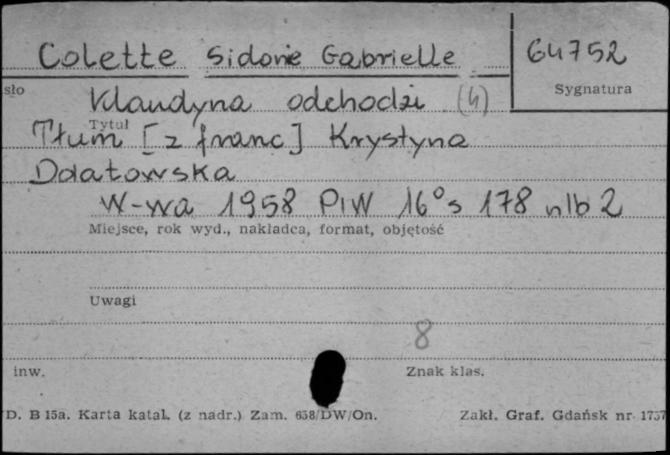 Colette Sidonie Gabrielle 64752
sło Sygnatura
Klaudyna odchodzi (4)
Tytuł
Tłum [z franc] Krystyna
Dolatowska
W-wa 1958 PIW 16° s 178 nlb 2
Miejsce, rok wyd., nakładca, format, objętość
Uwagi
8
inw. Znak klas.
D. B 15a. Karta katal. (z nadr.) Zam. 658/DW/On. Zakł. Graf. Gdańsk nr 1737